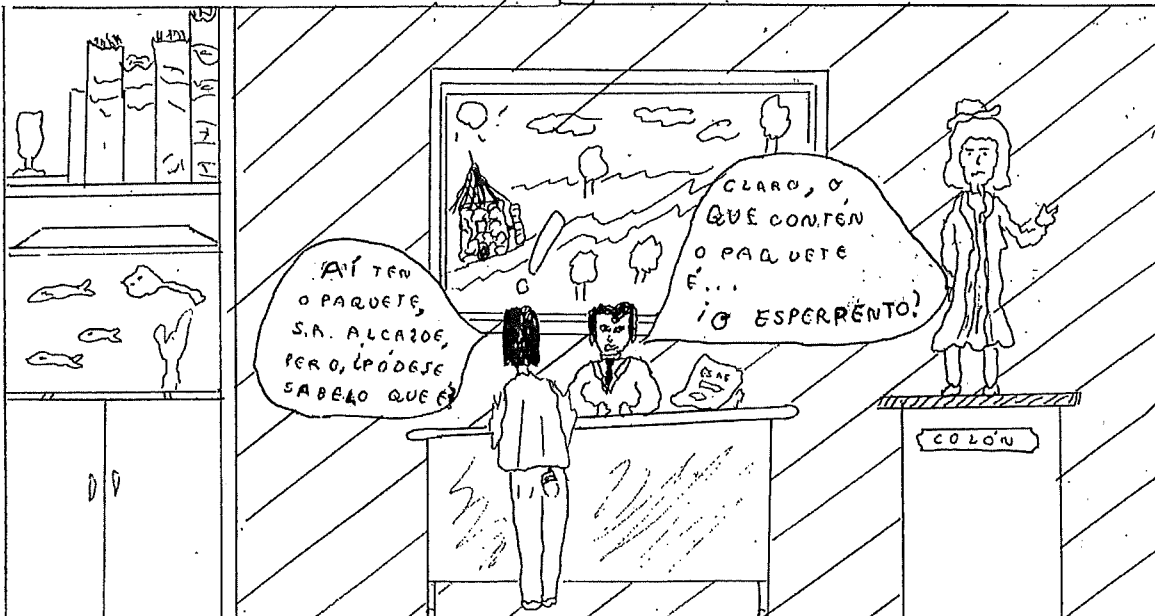 AÍ TEN
O PAQUETE,
S.A. ALCALDE,
PERO, ¿PÓDESE
SABELO QUE É?
CLARO, O
QUE CONTÉN
O PAQUETE
É...
¡O ESPERPENTO!
COLÓN